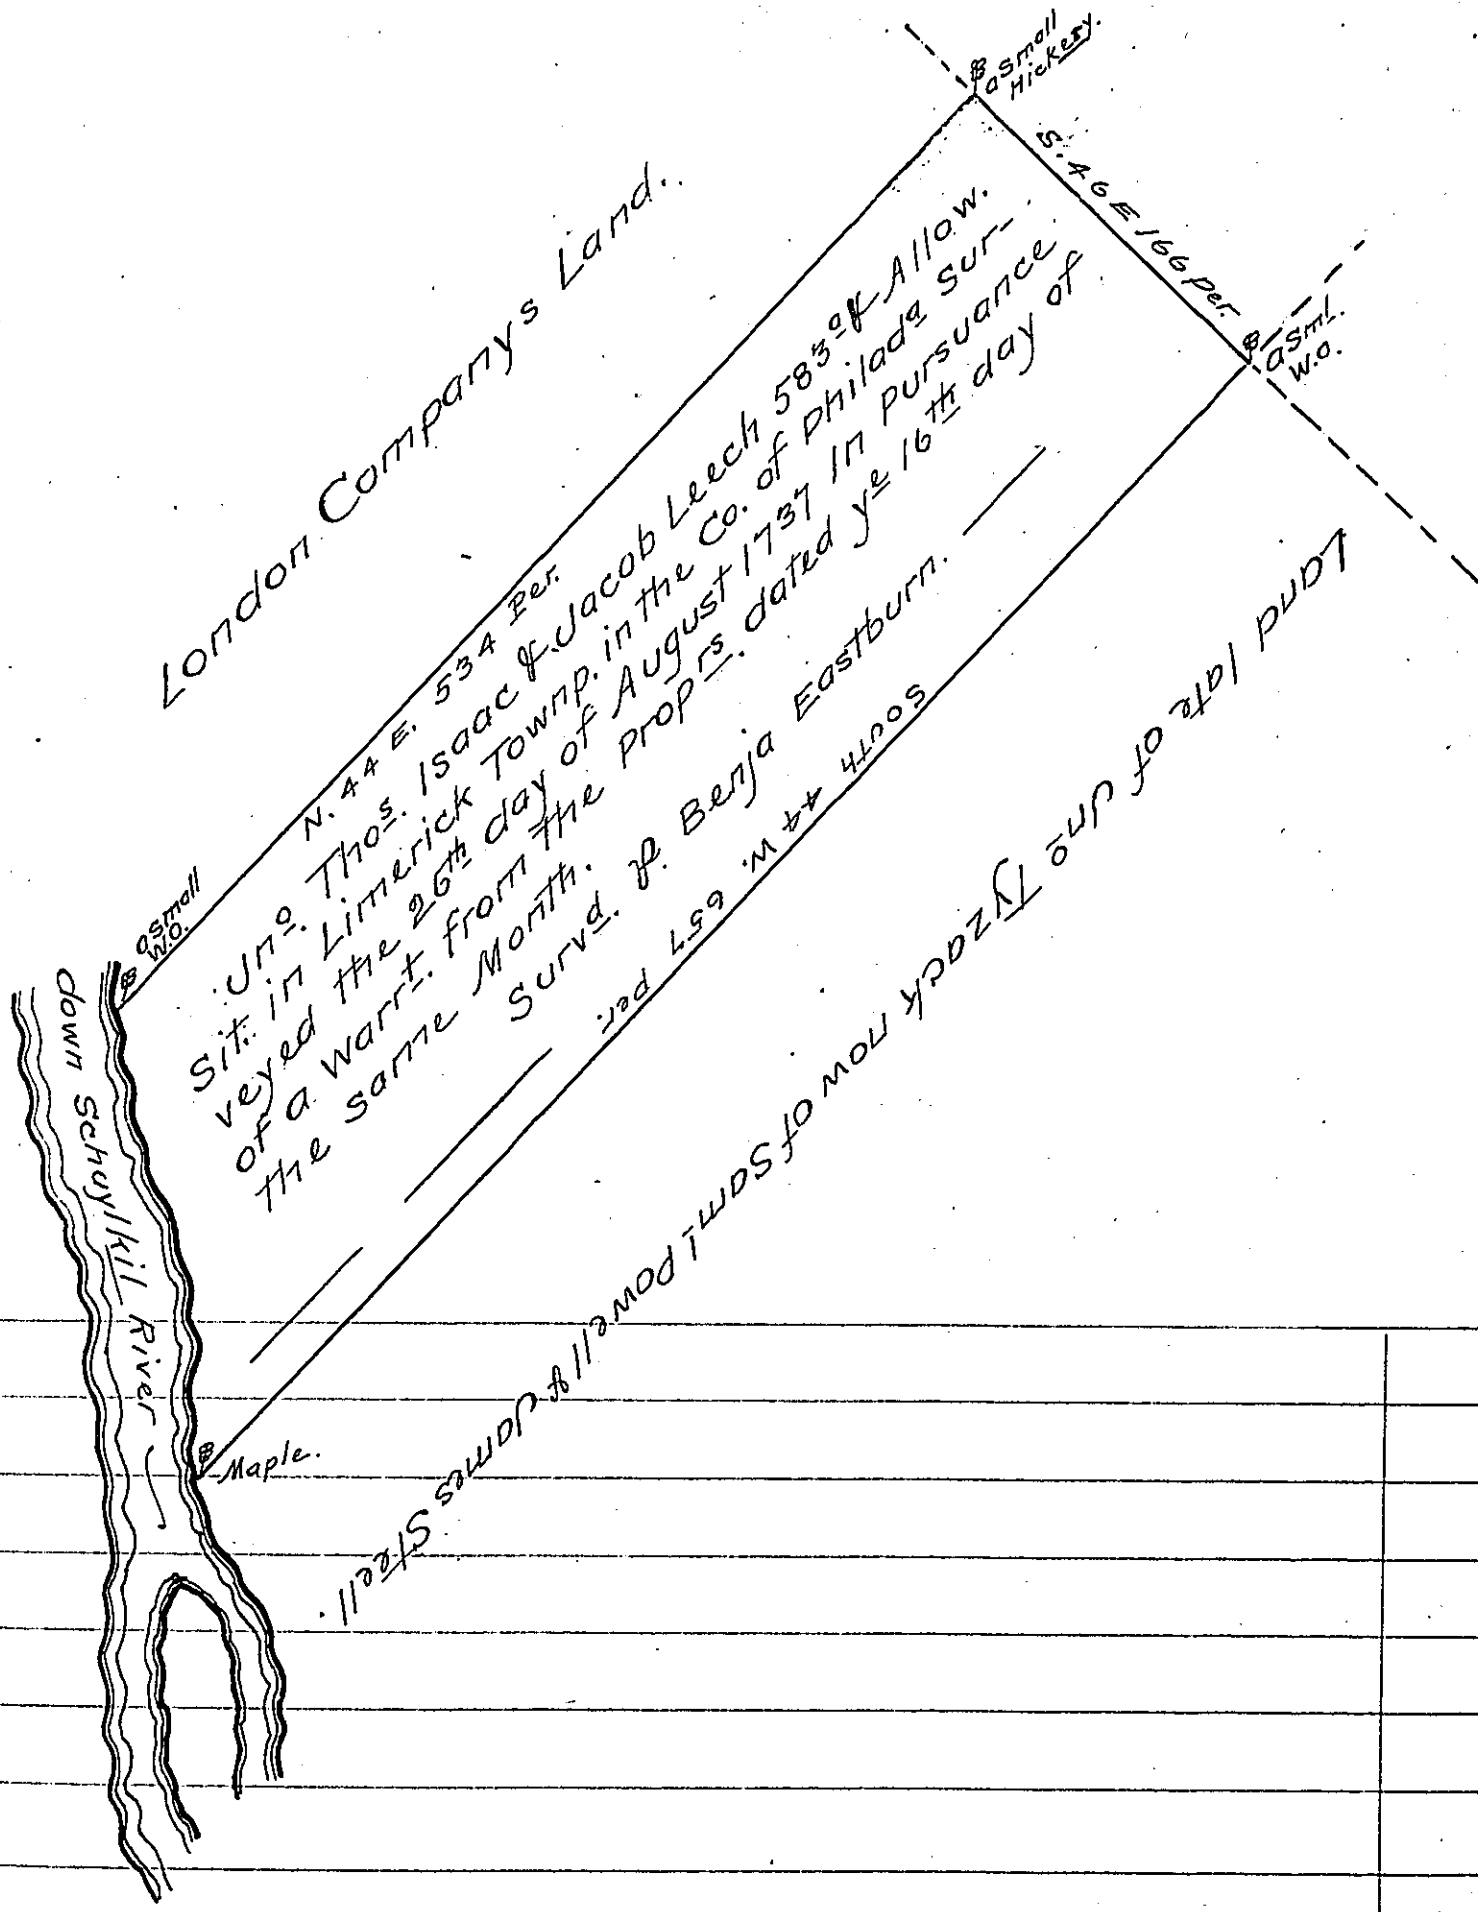 a small
Hickery.
London Companys Land.
S. 46 E 166 per.
a sml.
W.O.
N. 44 E. 534 Per.
a small
W.O.
Jno. Thos. Isaac & Jacob Leech 583a & Allow.
Sit. in Limerick Townp. in the Co. of Philada Sur-
veyed the 26th day of August 1737 In pursuance
of a warrt. from the Proprs. dated ye 16th day of
the same Month.
Survd. p. Benja Eastburn.
South 44 W. 657 per.
Land late of Jno Tyzack now of Saml Powell & James Steell.
down Schuylkil River
Maple.